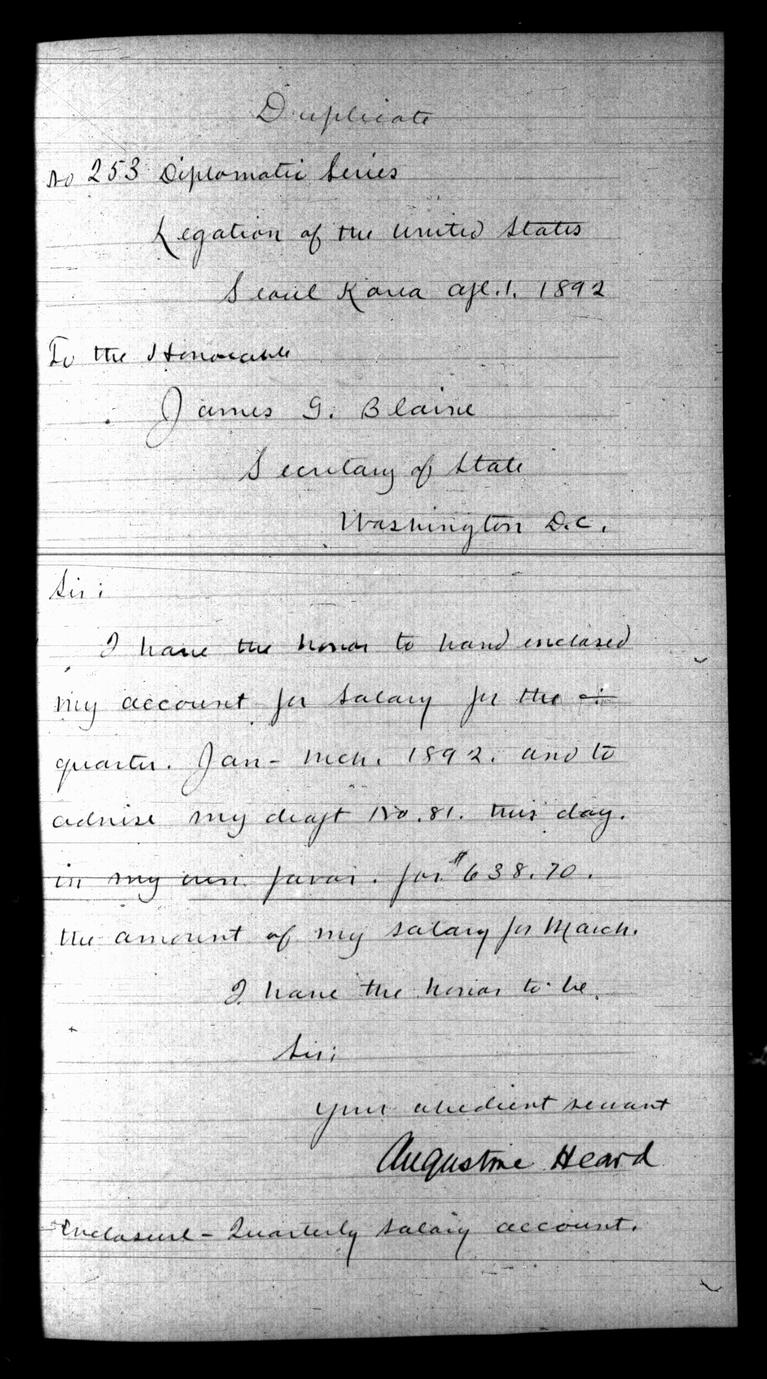 Duplicate
No 253 Diplomatic Series
Legation of the United States
Seoul Korea Apl. 1. 1892
To the Honorable
James G. Blaine
Secretary of State
Washington D.C.
Sir:
I have the honor to hand enclosed
my account for salary for the
quarter. Jan - Mch. 1892. and to
advise my draft No. 81. this day.
in my own favor. for $638.70.
the amount of my salary for March.
I have the honor to be.
Sir;
your obedient servant
Augustine Heard
Enclosure - Quarterly salary account.